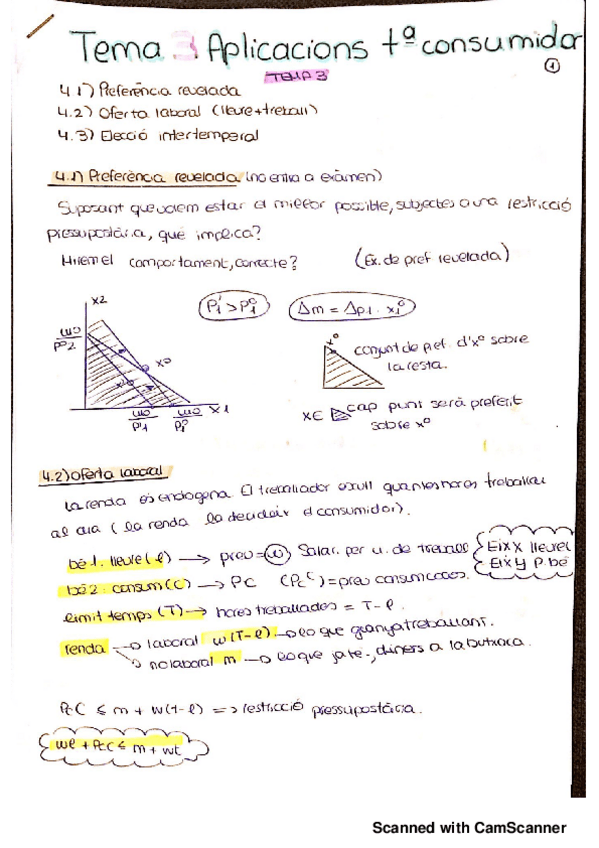 Tema 3 Aplicacions tª consumidor
TEMA 3
1
4.1) Preferència revelada
4.2) Oferta laboral (lleure+treball)
4.3) Elecció intertemporal
4.1) Preferència revelada (no entra a exàmen)
Suposant que volem estar el millor possible, subjectes a una restricció
pressupostària, què implica?
Mirem el comportament, correcte? (Ex. de pref revelada)
x2
P1' > P1⁰
Δm = Δp1 · x1⁰
x⁰
conjunt de pref. d'x⁰ sobre
la resta.
x⁰
x1
x ∈ cap punt serà preferit
sobre x⁰
4.2) Oferta laboral
La renda és endògena. El treballador escull quantes hores treballar
al dia (la renda la decideix el consumidor).
bé 1. lleure (l) → preu = w Salar. per u. de treball
Eix x lleure
Eix y P. bé
bé 2. consum (C) → PC (Pc) = preu
límit temps (T) → hores treballades = T - l.
renda → laboral w(T-l) → lo que guanya treballant.
→ no laboral m → lo que ja té, diners a la butxaca.
PcC ≤ m + w(t-l) => restricció pressupostària.
wl + PcC ≤ m + wt
Scanned with CamScanner